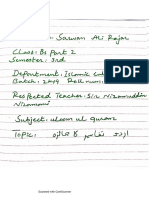 Sarwan Ali Rajar
Class: Bs Part 2
Semester: 3rd
Department: Islamic
Batch: 2k19 Roll
Respected Teacher: Sir Nizamuddin
Nizamani
Subject: uloom ul quran
Topic: اردو تفاسیر کا جائزہ
Scanned with CamScanner